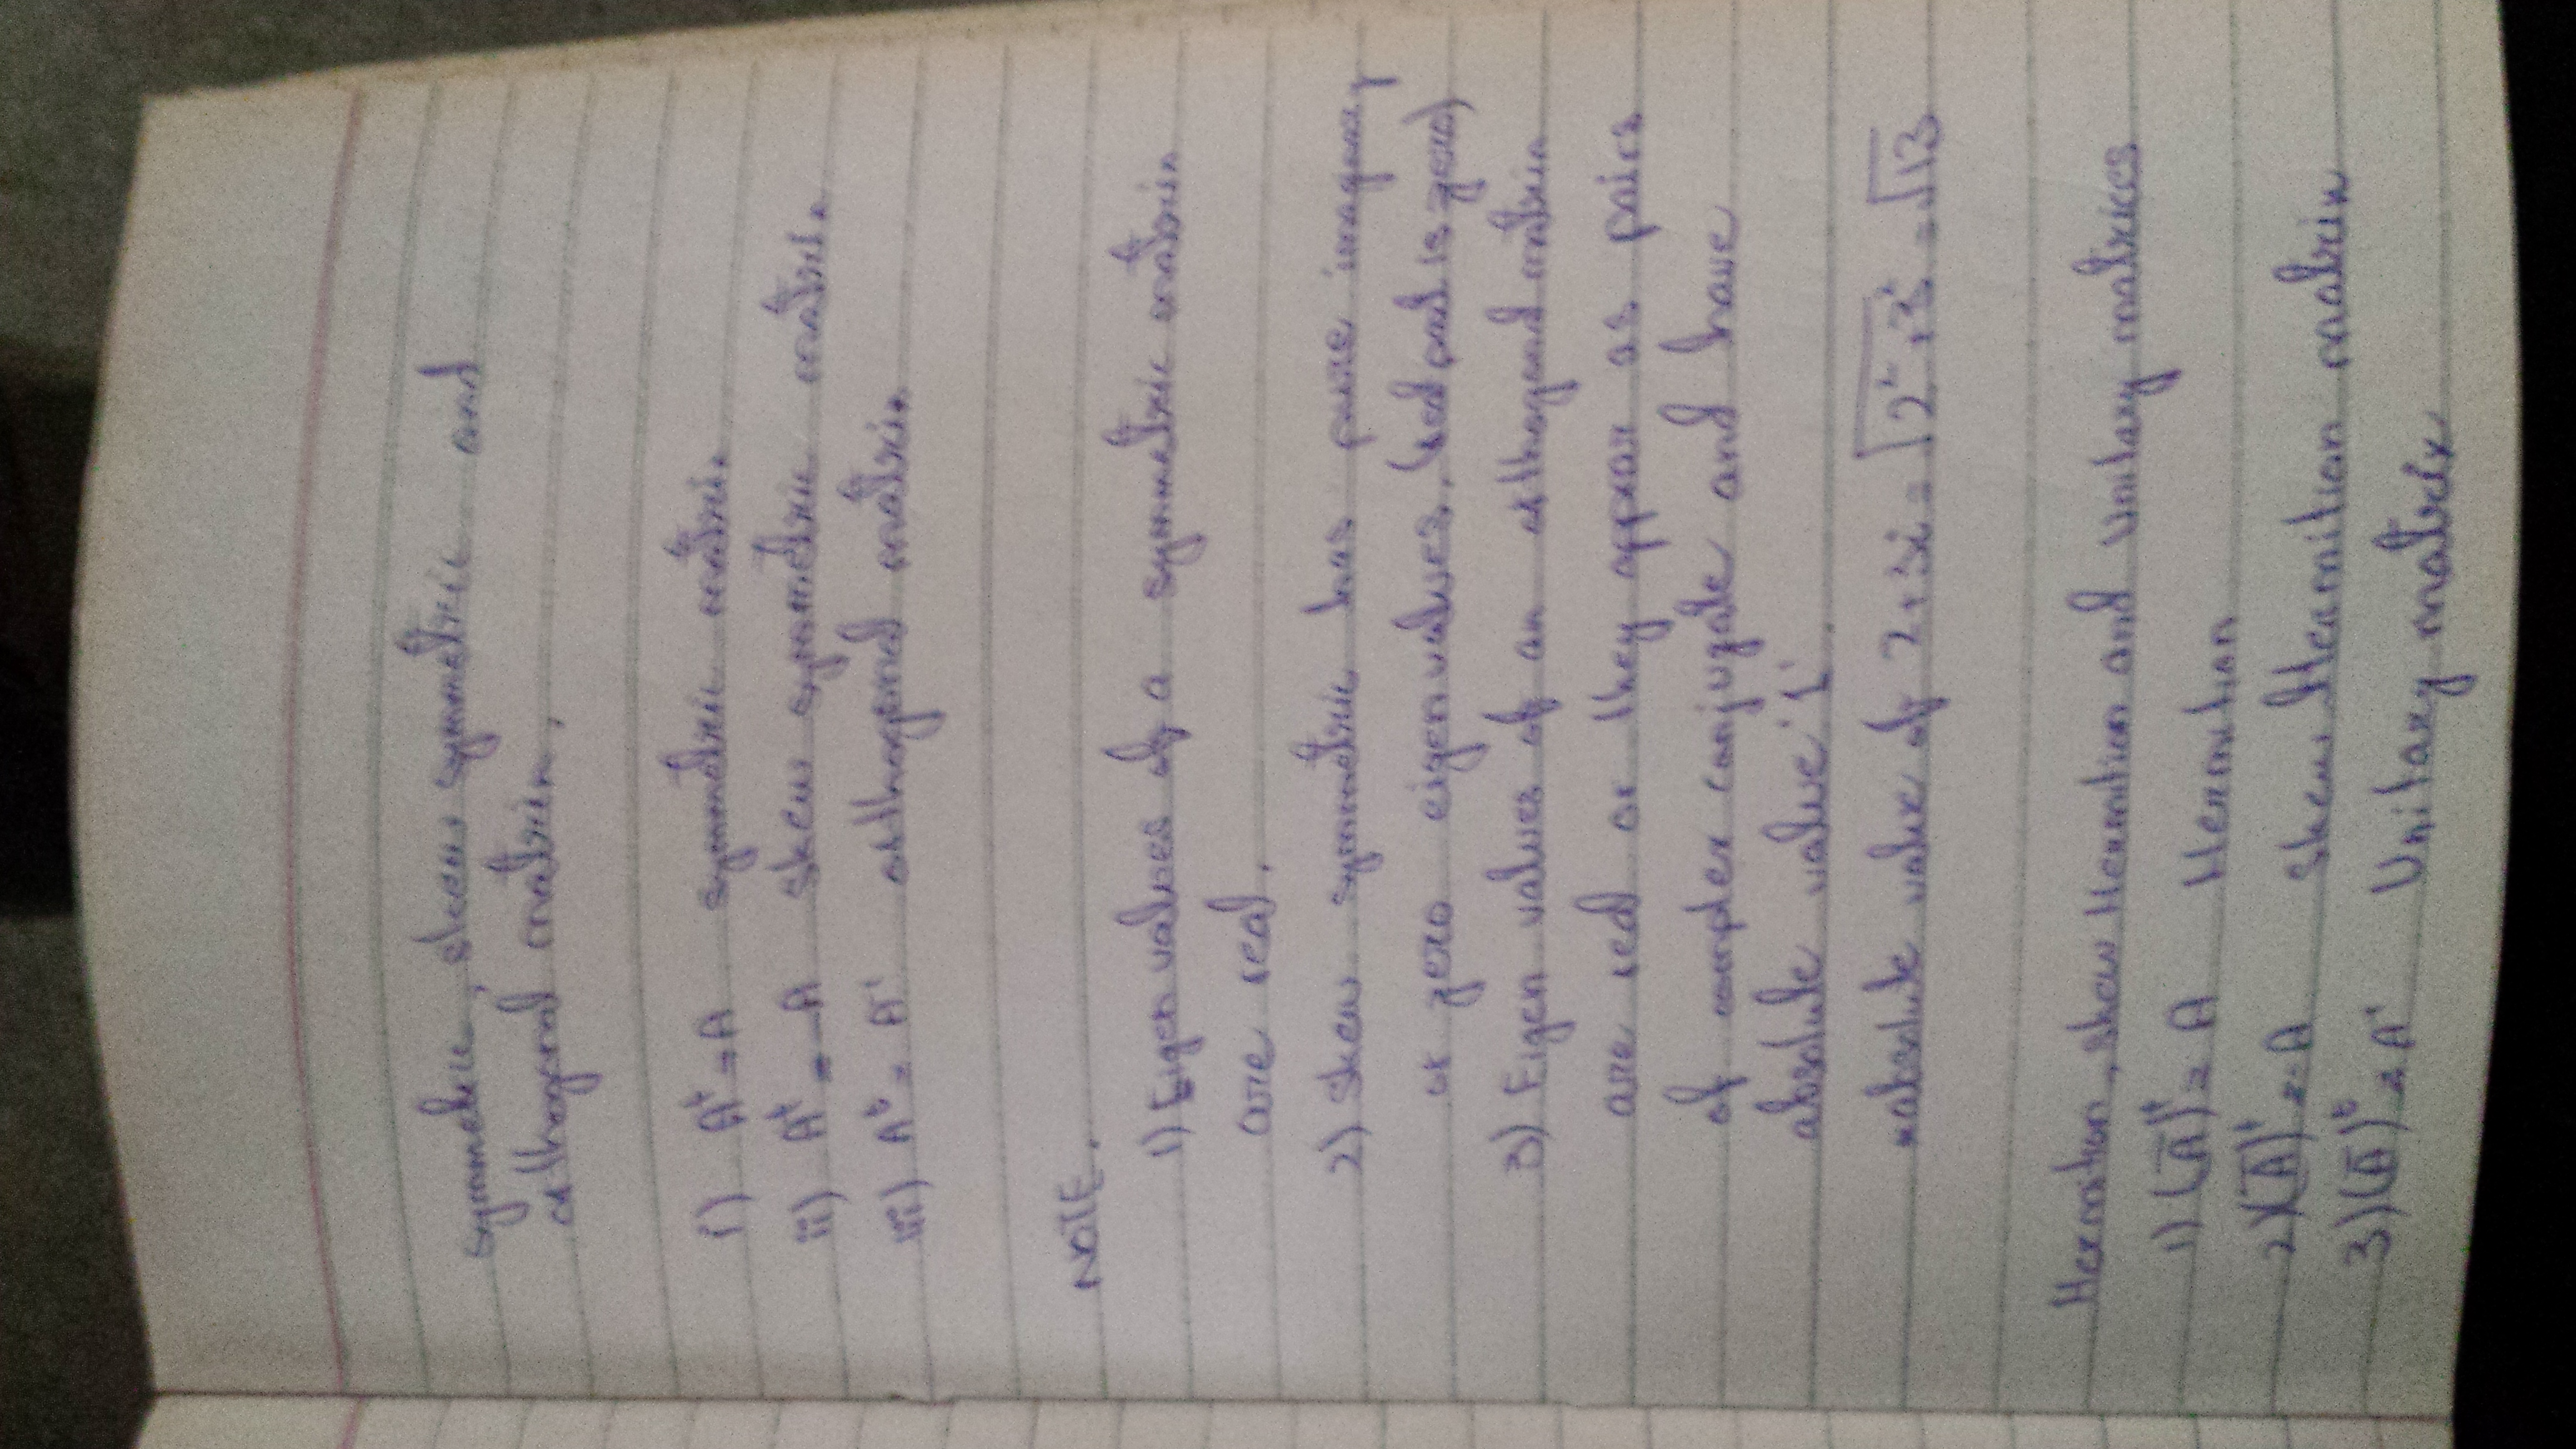 symmetric, skew symmetric and
orthogonal matrix,
i) Aᵗ = A symmetric matrix
ii) Aᵗ = -A skew symmetric matrix.
iii) Aᵗ = A⁻¹ orthogonal matrix.
NOTE.
1) Eigen values of a symmetric matrix
are real.
2) Skew symmetric has pure imagary
or zero eigen values. (real part is zero)
3) Eigen values of an orthogonal matrix
are real or they appear as pairs
of complex conjugate and have
absolute value '1'.
absolute value of 2+3i = √2²+3² = √13
Hermition, skew Hermition and Unitary matrices
1) (Ā)ᵗ = A Hermitian
2) (Ā)ᵗ = -A skew Hermition matrix
3) (Ā)ᵗ = A⁻¹ Unitary matrix